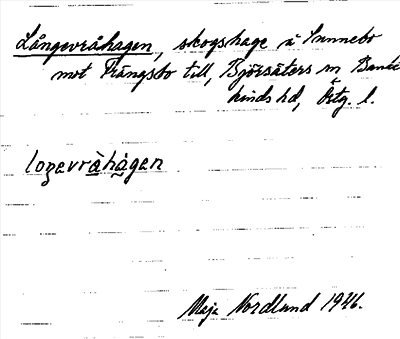 Långevråhagen, skogshage å Sunnebo
mot Trängsbo till, Björsäters sn Bankekinds hd, Östg. l.
loŋevràhàgen
Maja Nordlund 1946.